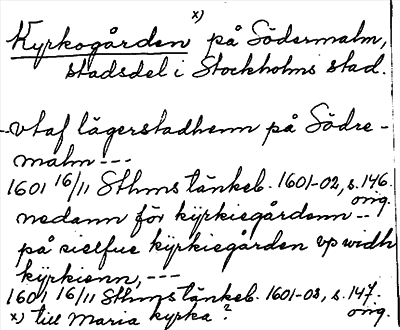 x)
Kyrkogården på Södermalm,
stadsdel i Stockholms stad.
- vtaf lägerstadhenn på Södre-
malm ---
1601 16/11 Sthms tänkeb. 1601-02, s. 146.
orig.
nedann för kÿrkiegårdenn --
på sielfue kÿrkiegården vp widh
kÿrkienn, ---
1601 16/11 Sthms tänkeb. 1601-03, s. 147.
x) till Maria kyrka? orig.